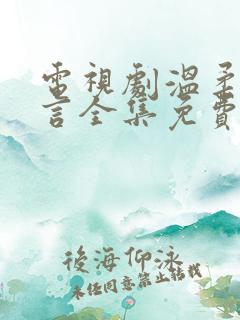 電視劇溫柔
言全集免費
後海仰泳
未经同意禁止转载